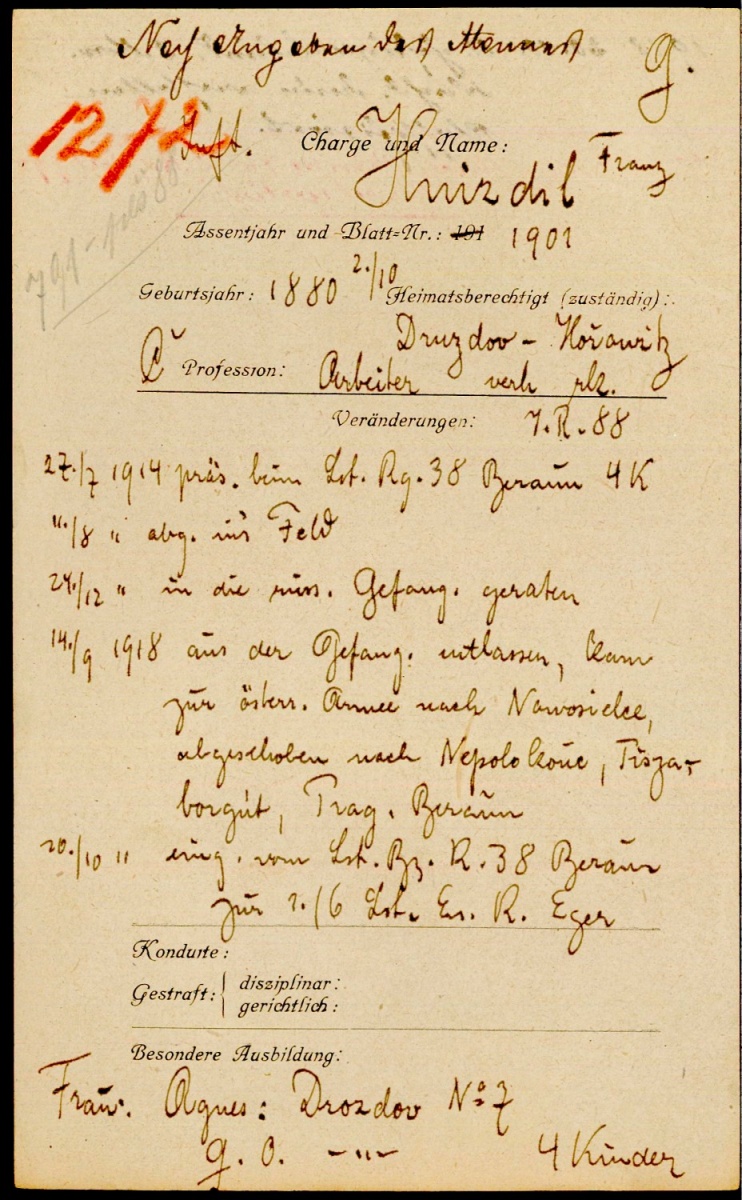 Nach Angaben des Mannes
G.
1272
Inft. Charge und Name:
Hnizdil Franz
Assentjahr und Blatt=Nr.: 191 1901
Geburtsjahr: 1880 2./10 Heimatsberechtigt (zuständig):
Druzdov - Hořowitz
Č Profession: Arbeiter verh rk.
Veränderungen: I.R. 88
27./7 1914 präs. beim Lst. Rg. 38 Beraun 4 K
"/8 " abg. ins Feld
24./12 " in die russ. Gefang. geraten
14./9 1918 aus der Gefang. entlassen, kam
zur österr. Armee nach Nowosielce,
abgeschoben nach Nepolokoue, Tisza-
borgút, Prag, Beraun
20./10 " eing. vom Lst. Bz. K. 38 Beraun
zur 2./6 Lst. Es. K. Eger
Konduite:
Gestraft: disziplinar:
gerichtlich:
Besondere Ausbildung:
Frau: Agnes: Drozdov No 7
G. O. -"- 4 Kinder